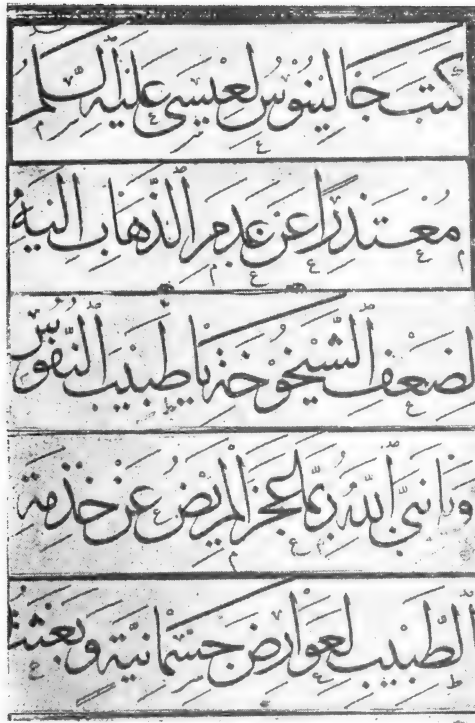 كتب جالينوس لعيسى عليه السلم
معتذرا عن عدم الذهاب اليه
لضعف الشيخوخة يا طبيب النفوس
ويا نبى الله ربما عجز المريض عن خدمة
الطبيب لعوارض جسمانية وبعثت